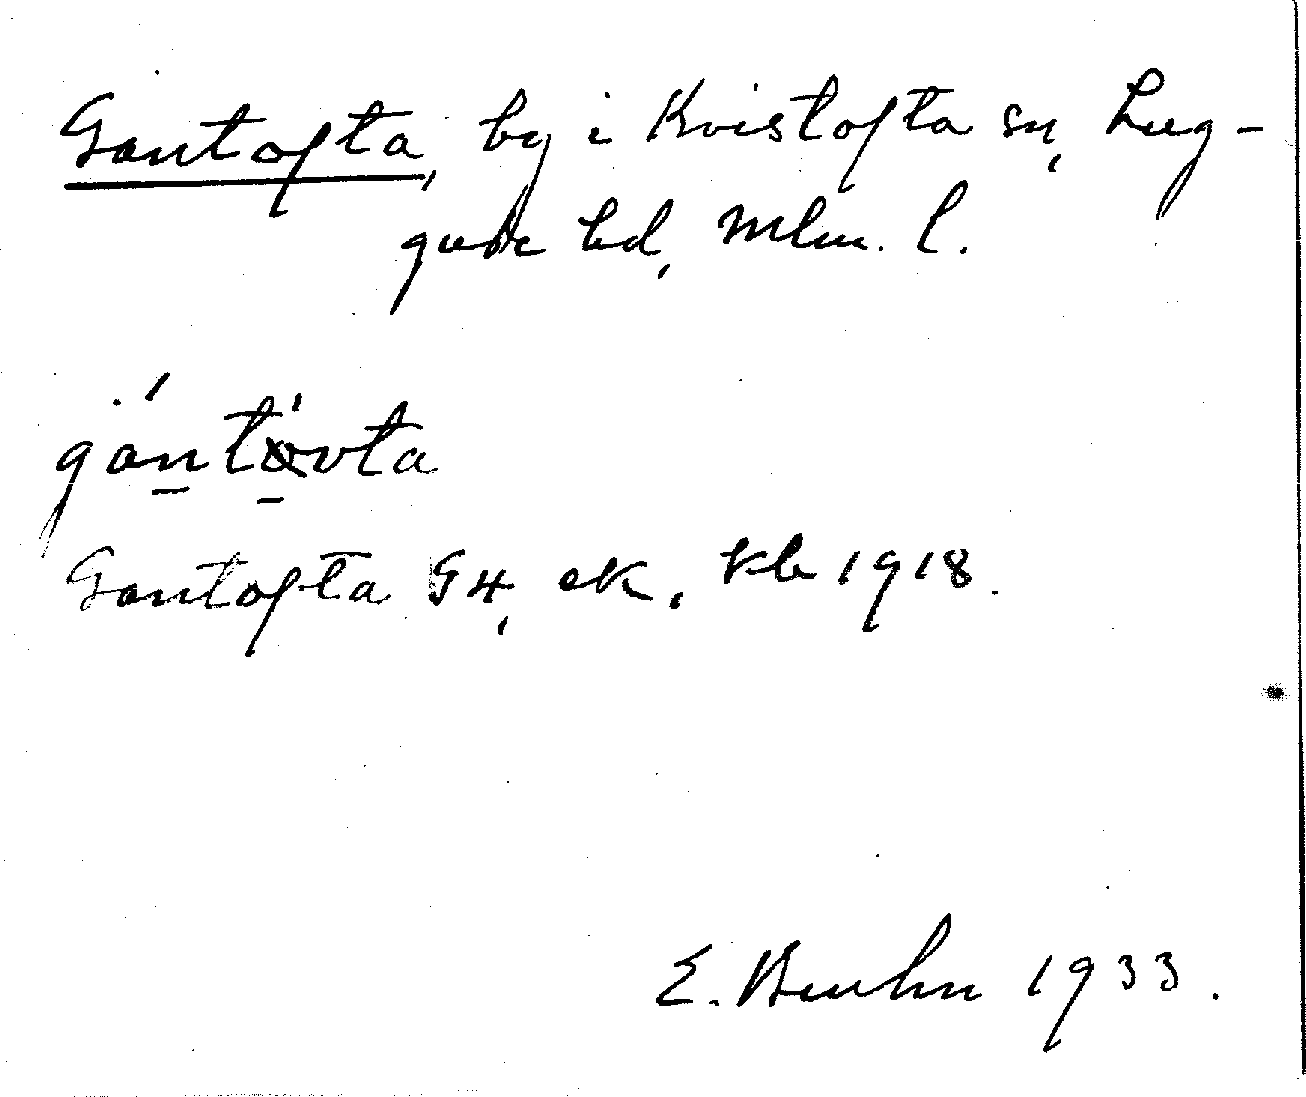 Gantofta, by i Kvistofta sn, Lug-
gude hd, Mlm. l.
gantovta
Gantofta G4, ek. kb 1918.
E. Bruhn 1933.